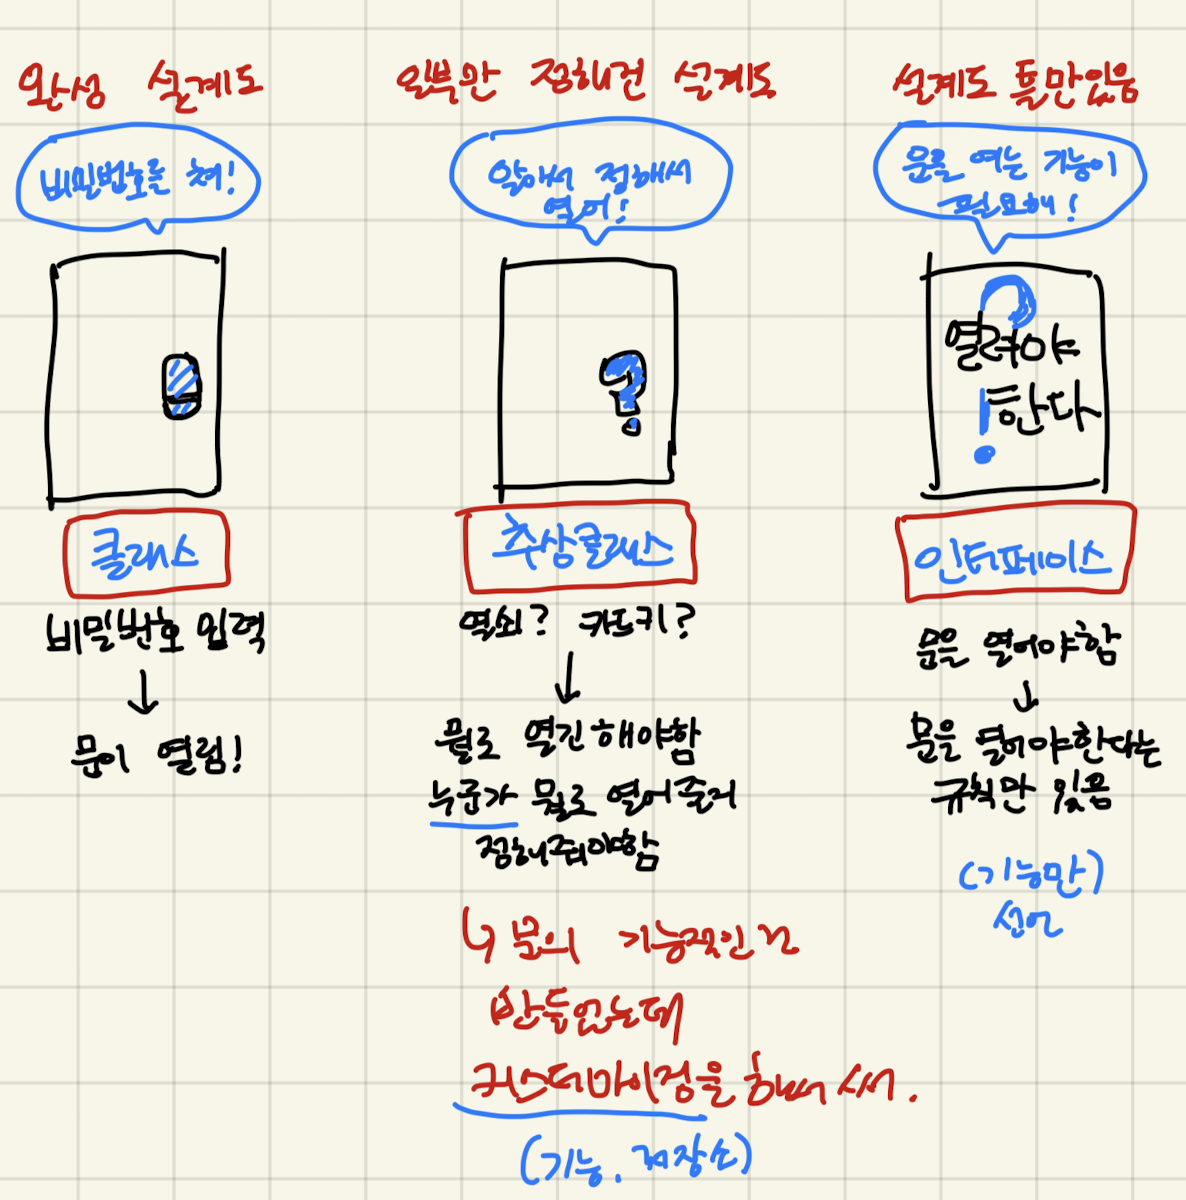 완성 설계도
비밀번호를 쳐!
클래스
비밀번호 입력
↓
문이 열림!
일부만 정해건 설계도
알아서 정해서
열어!
?
추상클래스
열쇠? 카드키?
↓
뭘로 열긴 해야함
누군가 뭘로 열어줄지
정해줘야함
↳ 문의 기능적인건
만들었는데
커스터마이징을 해서 써.
(기능, 저장소)
설계도 틀만있음
문을 여는 기능이
필요해!
?
열려야
!한다
인터페이스
문을 열어야함
↓
문을 열어야한다는
규칙만 있음
(기능만)
선언